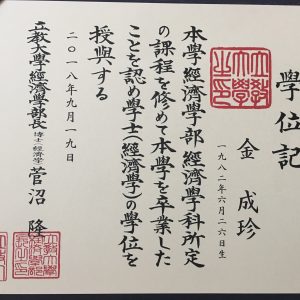 學位記
金成珍
一九八二年六月二六日生
本學經濟學部經濟學科所定
の課程を修めて本學を卒業した
ことを認め學士(經濟學)の學位を
授與する
二〇一八年九月一九日
立教大學經濟學部長 博士(經濟学) 菅沼隆